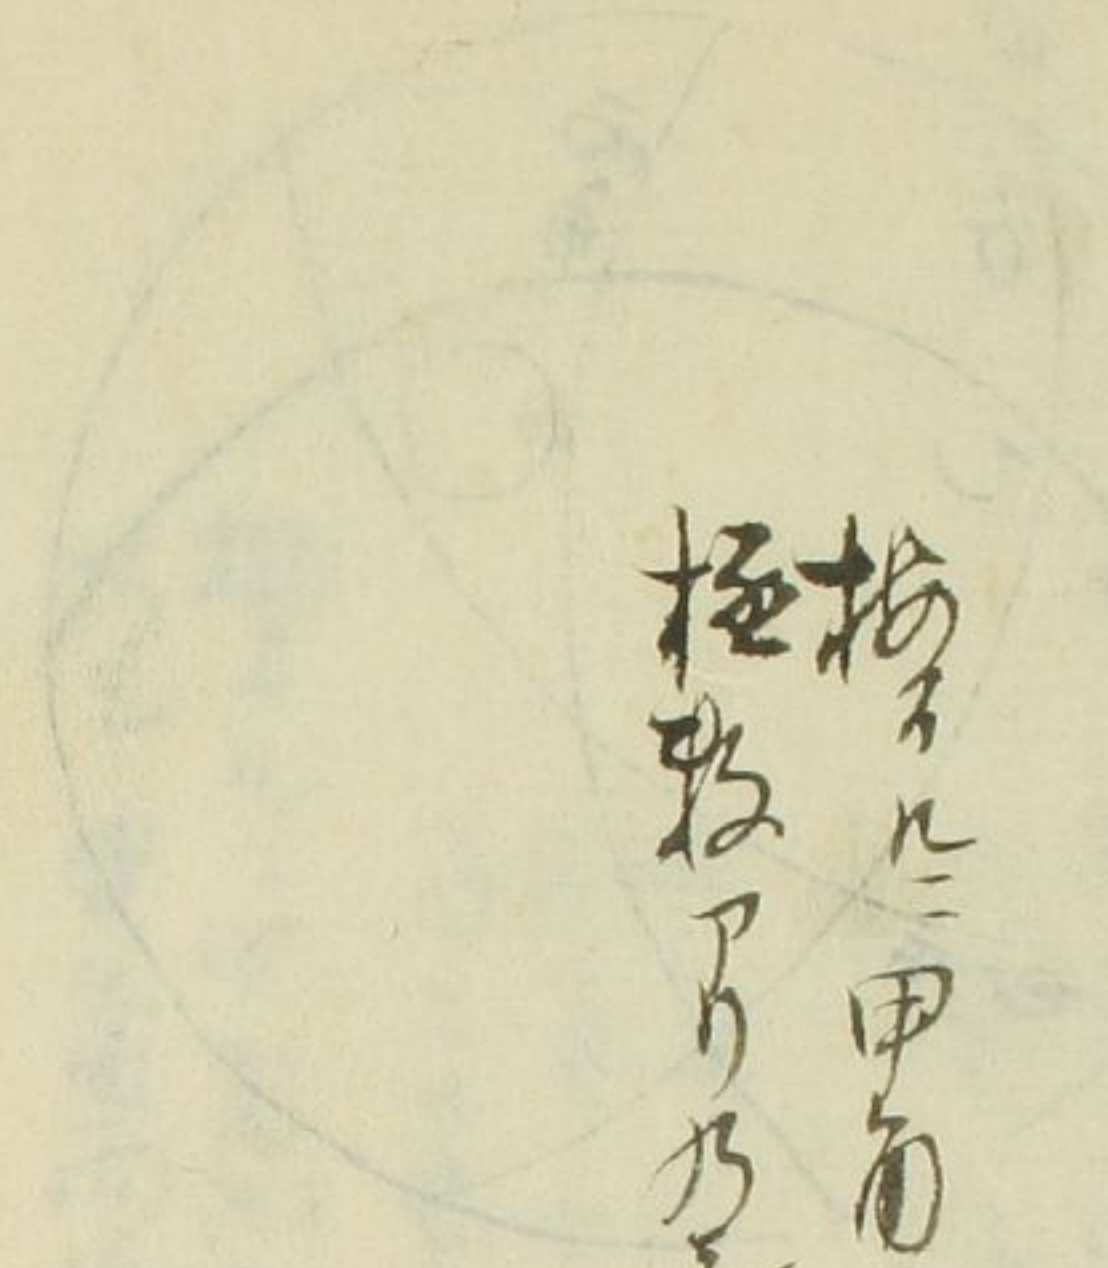 按スルニ甲角
極数アリ乃